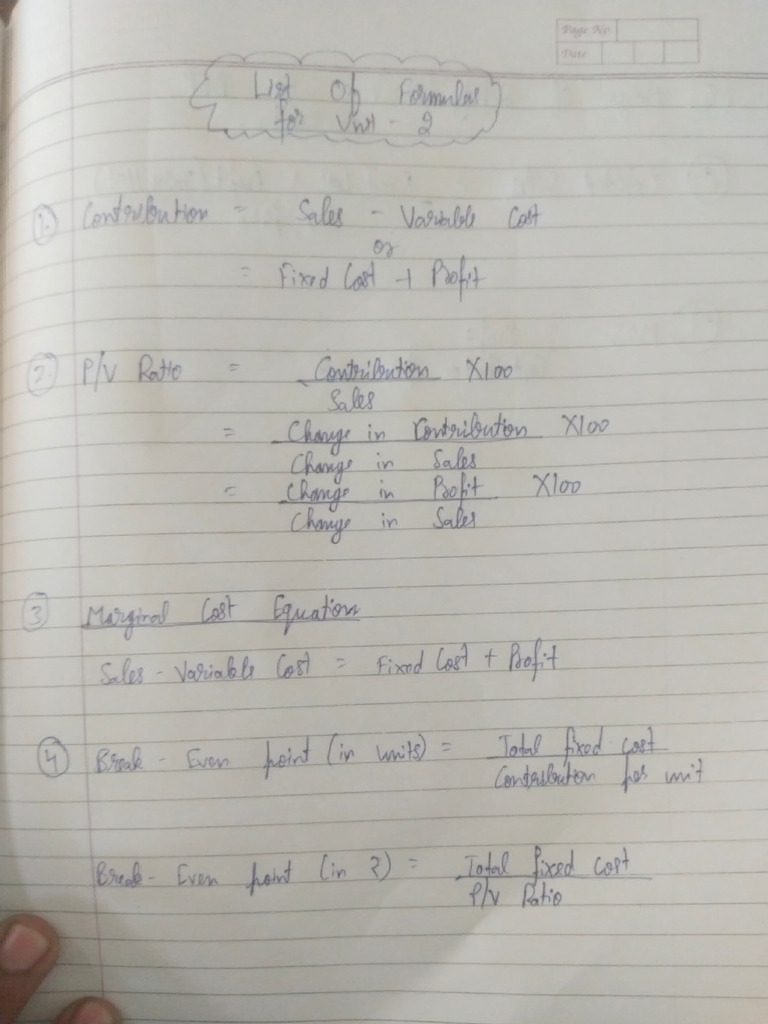 Page No
Date
List Of Formulas
for Unit - 2
1. Contribution = Sales - Variable Cost
or
= Fixed Cost + Profit
2. P/V Ratio = Contribution X100
Sales
= Change in Contribution X100
Change in Sales
= Change in Profit X100
Change in Sales
3 Marginal Cost Equation
Sales - Variable Cost = Fixed Cost + Profit
4 Break - Even point (in units) = Total fixed cost
Contribution per unit
Break - Even point (in ₹) = Total fixed cost
P/V Ratio